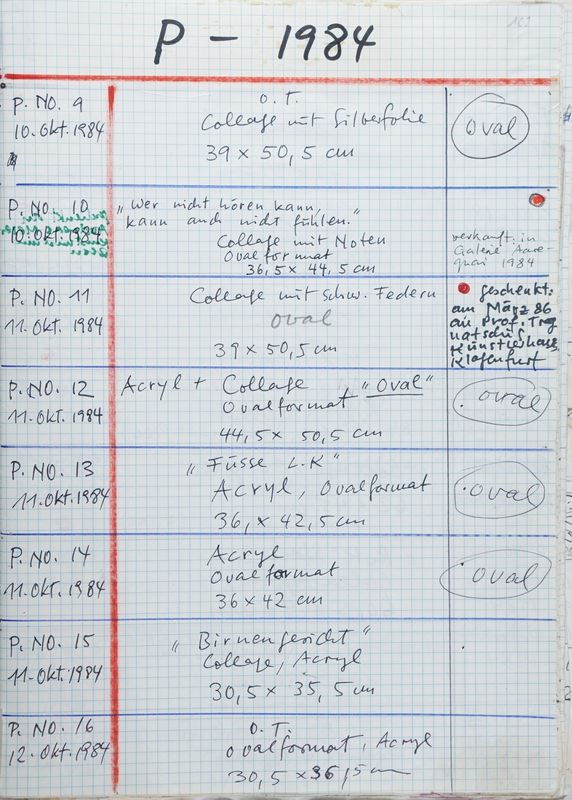 P - 1984
P. NO. 9
10. Okt. 1984
O.T.
Collage mit Silberfolie
39 x 50,5 cm
oval
P. NO. 10
10. Okt. 1984
„Wer nicht hören kann,
kann auch nicht fühlen."
Collage mit Noten
Ovalformat
36,5 x 44,5 cm
verkauft: in
Galerie Aare-
quai 1984
P. NO. 11
11. Okt. 1984
Collage mit schw. Federn
oval
39 x 50,5 cm
geschenkt:
am März 86
an Prof. Trog
Künstlerhaus
Klagenfurt
P. NO. 12
11. Okt. 1984
Acryl + Collage, „Oval"
Ovalformat
44,5 x 50,5 cm
oval
P. NO. 13
11. Okt. 1984
„Füsse L.K"
Acryl, Ovalformat
36, x 42,5 cm
oval
P. NO. 14
11. Okt. 1984
Acryl
Ovalformat
36 x 42 cm
oval
P. NO. 15
11. Okt. 1984
„Birnengesicht"
Collage, Acryl
30,5 x 35,5 cm
P. NO. 16
12. Okt. 1984
O.T.
Ovalformat, Acryl
30,5 x 36,5 cm